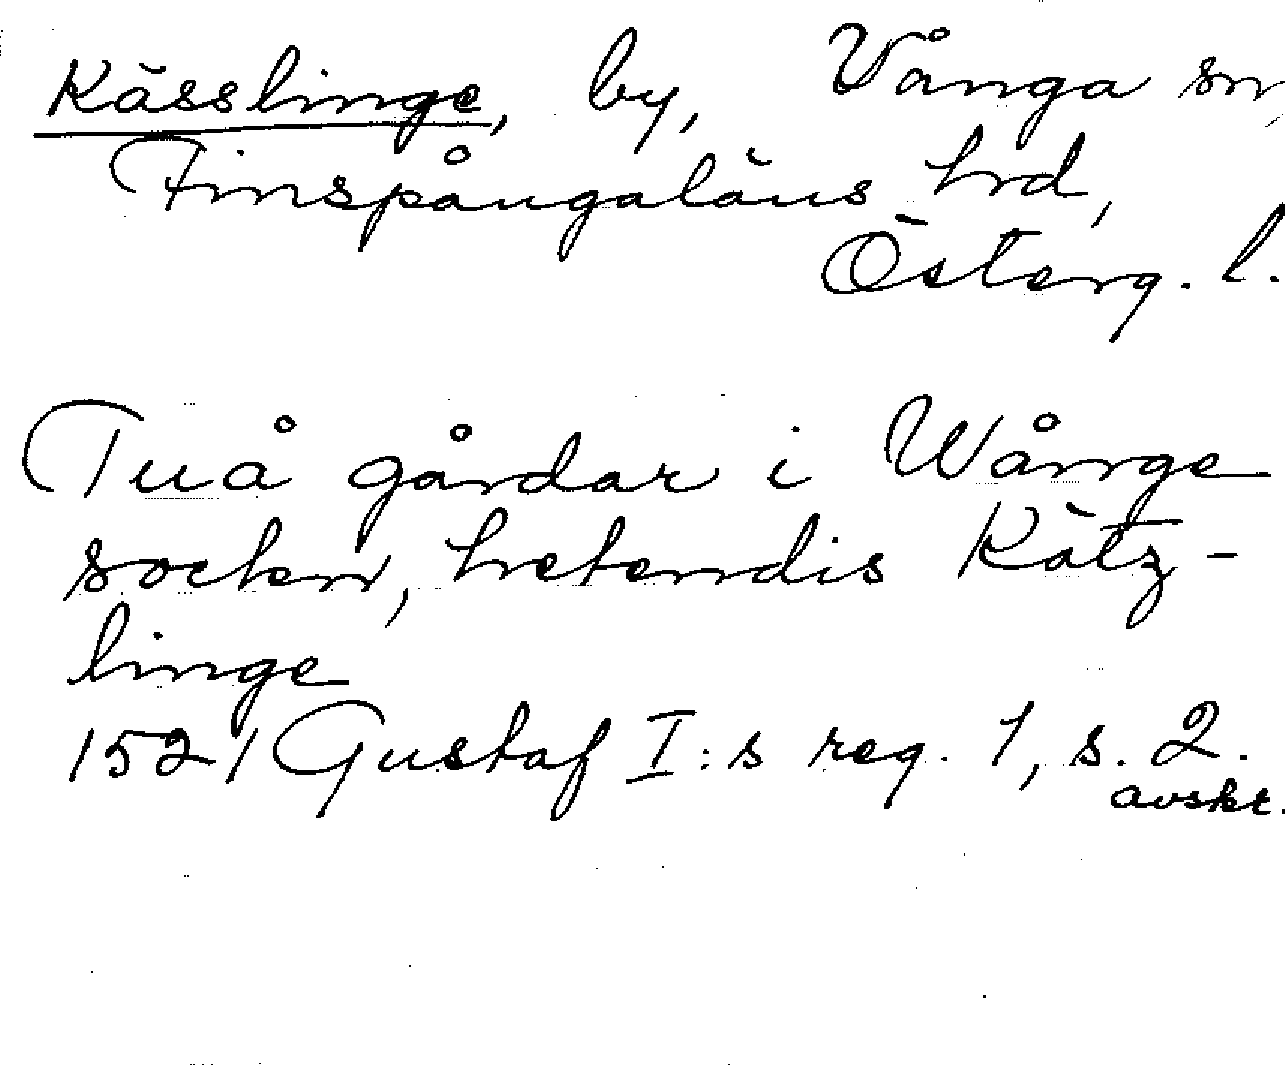 Kässlinge, by, Vånga sn,
Finspångaläns hrd,
Österg. l.
Tuå gårdar i Wånge
socken, hetendis Kätz-
linge
1521 Gustaf I:s reg. 1, s. 2.
avskr.